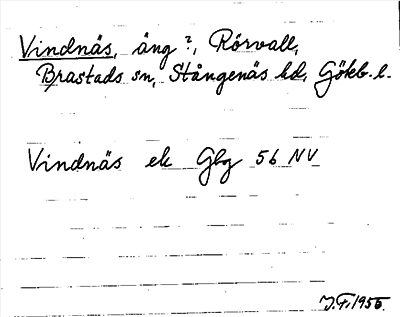 Vindnäs, äng?, Rörvall,
Brastads sn, Stångenäs hd, Göteb. l.
Vindnäs ek Gbg 56 NV
J.F. 1955.